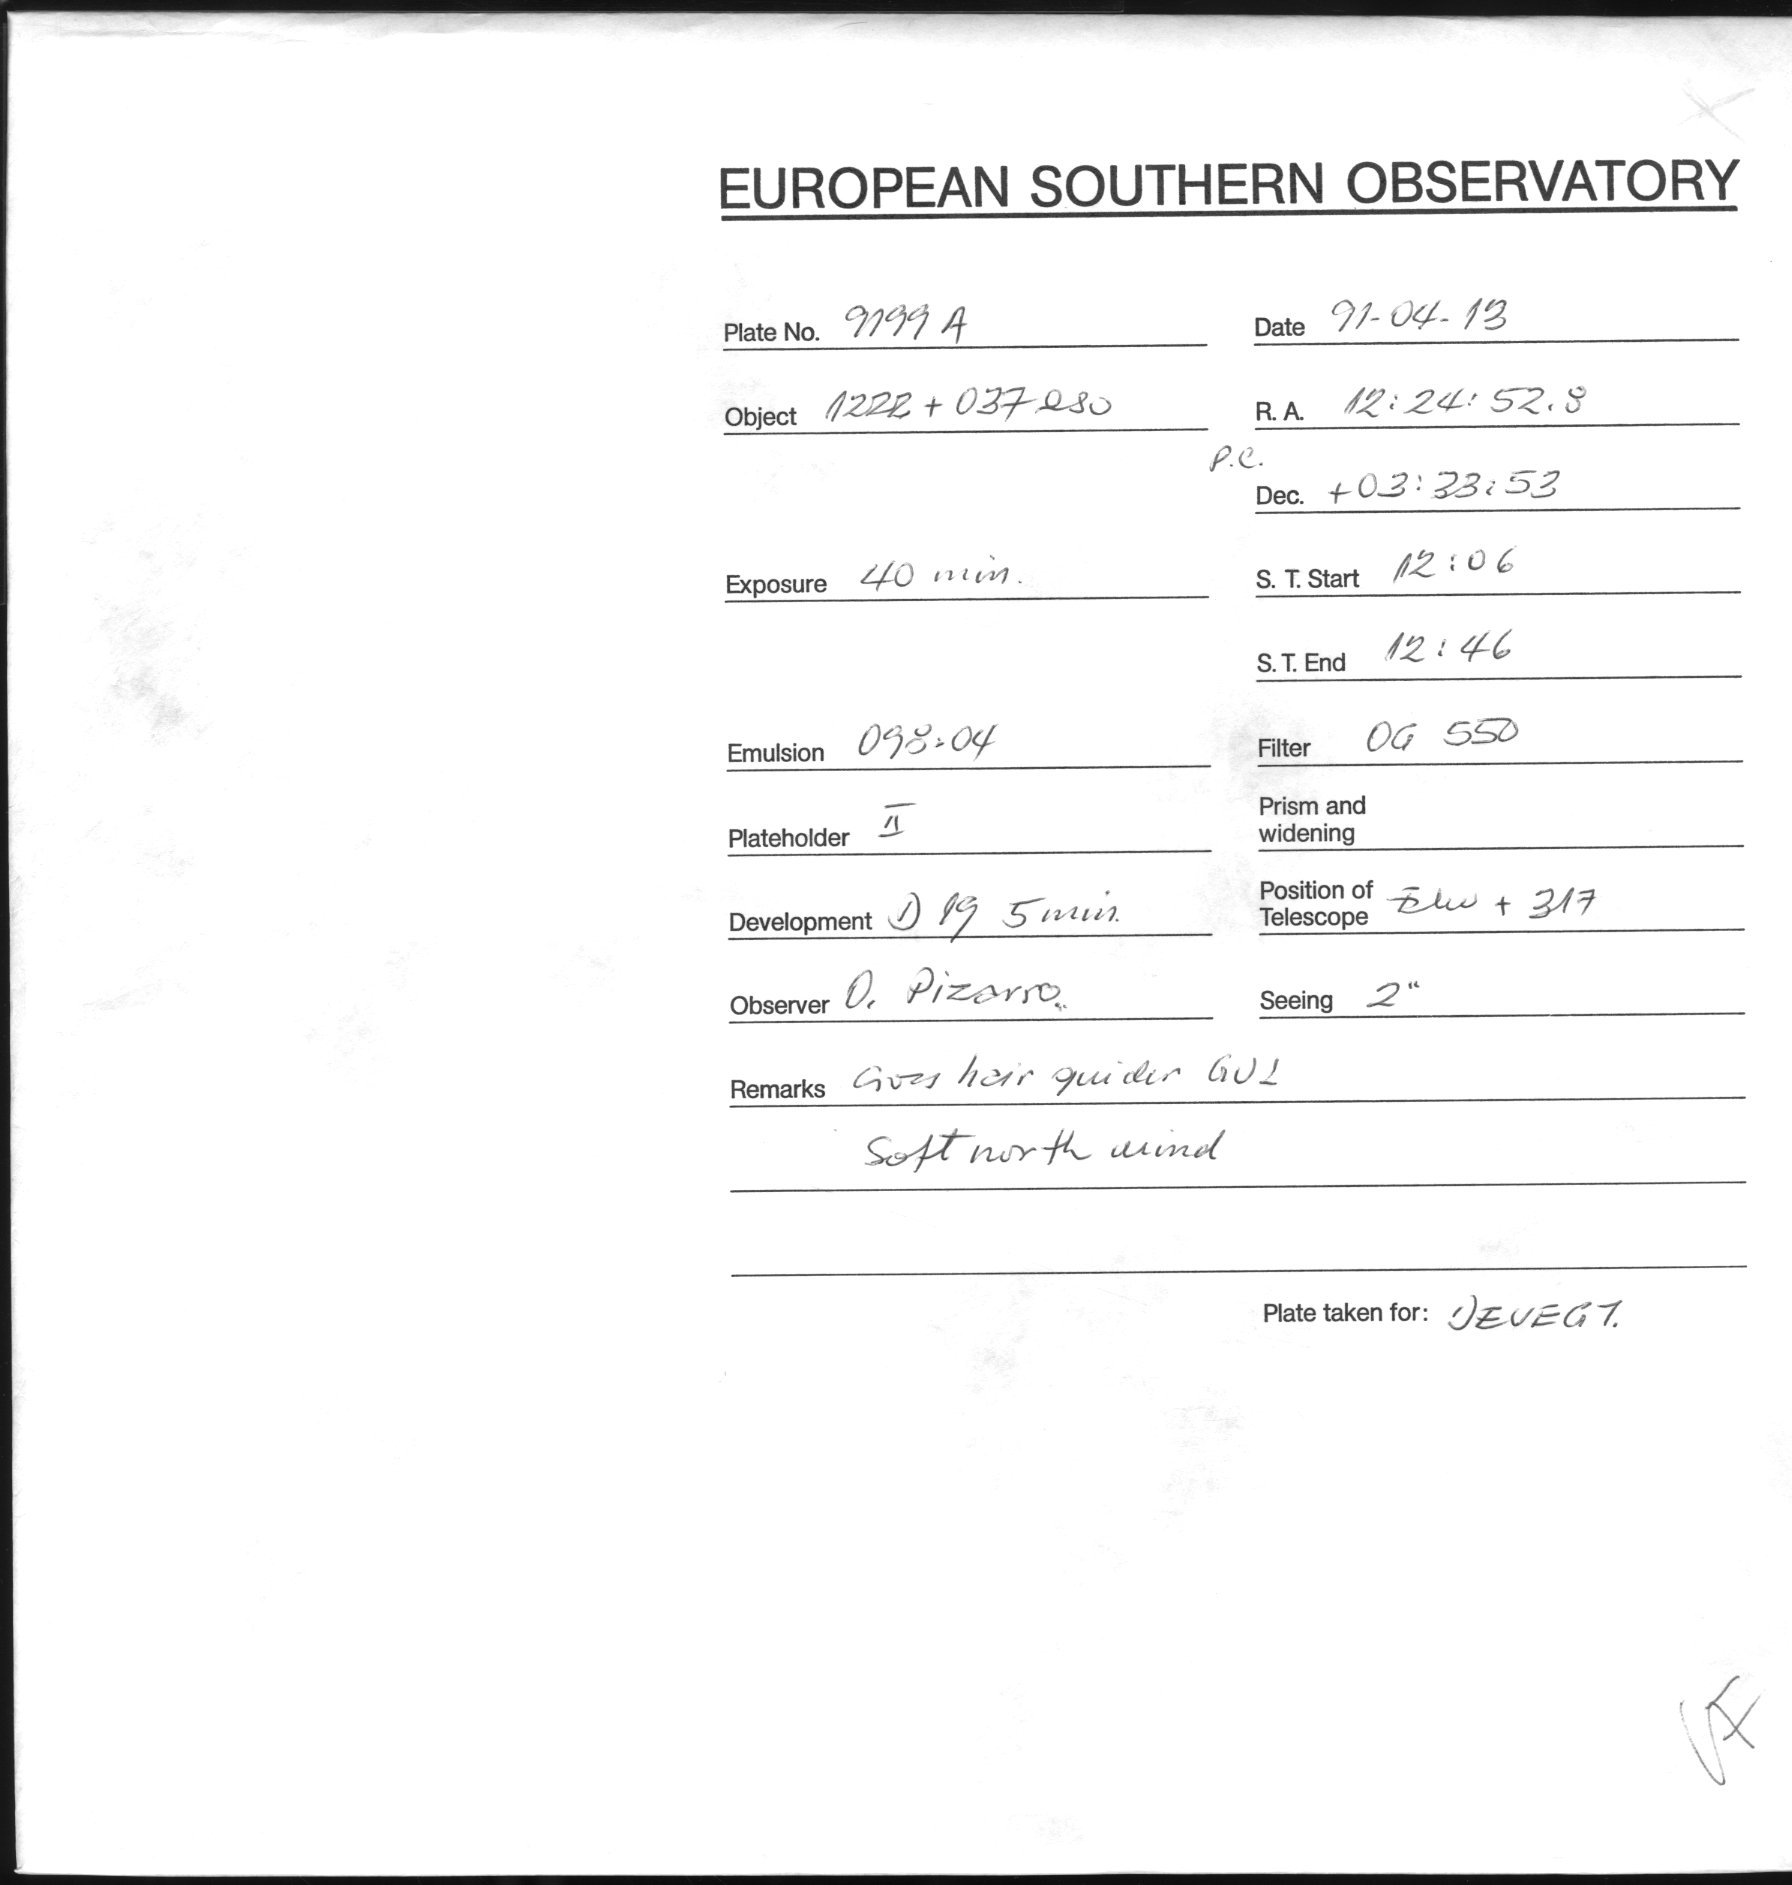 EUROPEAN SOUTHERN OBSERVATORY
Plate No. 9199 A Date 91-04-13
Object 1222 + 037 QSO R. A. 12:24:52.8
P.C.
Dec. +03:33:53
Exposure 40 min. S. T. Start 12:06
S. T. End 12:46
Emulsion 098-04 Filter OG 550
Plateholder II Prism and
widening
Development D 19 5 min. Position of
Telescope + 317
Observer O. Pizarro. Seeing 2"
Remarks hair guider
Soft north wind
Plate taken for: DEVEGT.